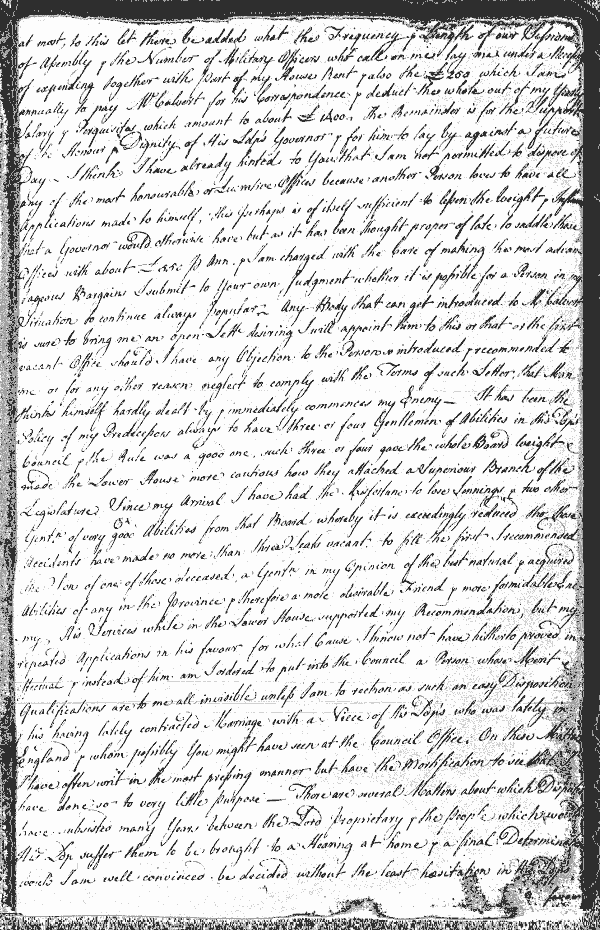 at most, to this let there be added what the Frequency & Length of our Sessions
of Assembly & the Number of Military Officers who call on me lay me under a Necessity
of expending together with Part of my House Rent & also the £250 which I am
annually to pay Mr Calvert for his Correspondence & deduct the whole out of my Yearly
Salary & Perquisites which amount to about £1400. The Remainder is for the Support
of the Honour & Dignity of His Ldps Governor & for him to lay by against a future
Day — I think I have already hinted to You that I am not permitted to dispose of
any of the most honourable or Lucrative Offices because another Person loves to have all
Applications made to himself, this perhaps is of itself sufficient to lessen the Weight &
that a Governor would otherwise have but as it has been thought proper of late to saddle those
Offices with about Ann. & I am charged with the Care of making the most advan
tageous Bargains I submit to Your own Judgment whether it is possible for a Person in my
Situation to continue always Popular — Any Body that can get introduced to Mr Calvert
is sure to bring me an open Lettr desiring I will appoint him to this or that or the first
vacant Office should I have any Objection to the Person so introduced & recommended to
me or for any other reason neglect to comply with the Terms of such Letter, that Man
thinks himself hardly dealt by & immediately commences my Enemy — It has been the
Policy of my Predecessors always to have three or four Gentlemen of Abilities in this Ldps
Council & the Rule was a good one, such three or four gave the whole Board Weight &
made the Lower House more cautious how they attached a Superiour Branch of the
Legislature. Since my Arrival I have had the Misfortune to lose Jennings & two other
Gentn of very good Abilities from that Board, whereby it is exceedingly reduced tho these
Accidents have made no more than three Seats vacant to fill the first I recommended
the Son of one of those deceased, a Gentn in my Opinion of the best natural & acquired
Abilities of any in the Province & therefore a more desirable Friend & more formidable Ene-
my, His Services while in the Lower House supported my Recommendation, but my
repeated Applications in his favour for what Cause I know not have hitherto proved in-
effectual & instead of him am I ordered to put into the Council a Person whose Merit &
Qualifications are to me all invisible unless I am to reckon as such an easy Disposition
his having lately contracted Marriage with a Niece of His Ldps who was lately in
England & whom possibly You might have seen at the Council Office. On these Matters
I have often writ in the most pressing manner but have the Mortification to see that I
have done so to very little purpose — There are several Matters about which Disputes
have subsisted many Years between the Lord Proprietary & the People which would
His Ldp suffer them to be brought to a Hearing at home & a final Determination
would I am well convinced be decided without the least hæsitation in His Ldps
favour